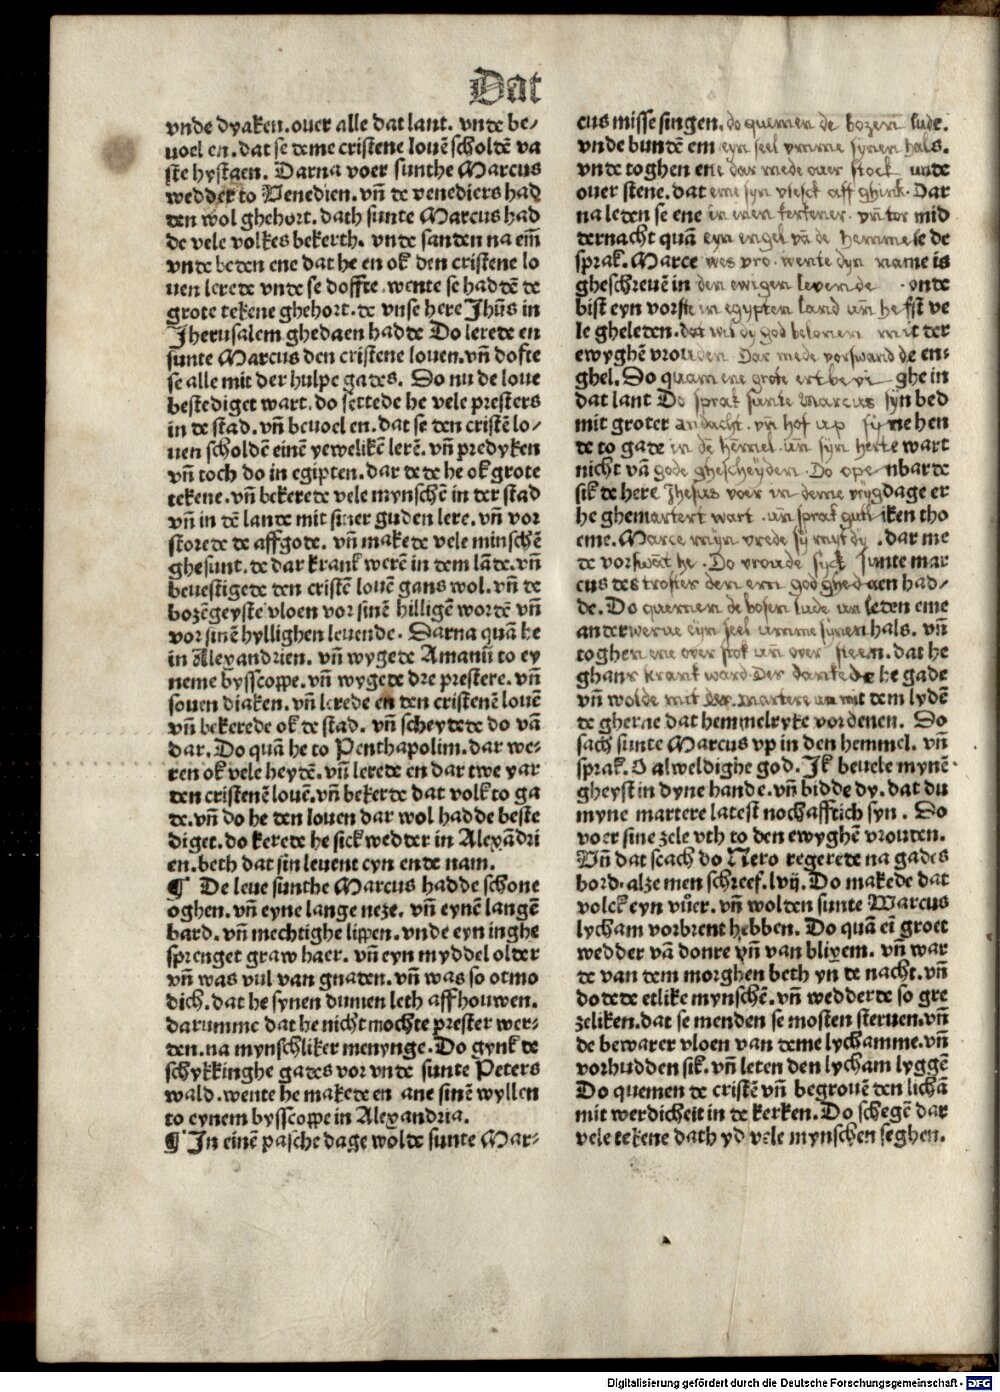 Dat
vnde dyaken. ouer alle dat lant. vnde be/
uolen. dat se deme cristene louē scholdē va
ste bystaen. Darna voer sunthe Marcus
wedder to Venedien. vñ de venediers had
den wol ghehort. dath sunte Marcus had
de vele volkes bekerth. vnde sanden na em̄
vnde beden ene dat he en ok den cristene lo
uen lerede vnde se doffte. wente se haddē de
grote tekene ghehort. de vnse here Jhūs in
Jherusalem ghedaen hadde Do lerede en
sunte Marcus den cristene louen. vñ dofte
se alle mit der hulpe gades. Do nu de loue
bestediget wart. do settede he vele presters
in de stad. vñ beuolen. dat se den cristē lo/
uen scholdē einē yewelikē lerē. vñ predyken
vñ toch do in egipten. dar dede he ok grote
tekene. vñ bekerede vele mynschē in der stad
vñ in dē lande mit siner guden lere. vñ vor
storede de affgode. vñ makede vele minschē
ghesunt. de dar krank werē in dem lāde. vñ
beuestigede den cristē louē gans wol. vñ de
bozēgeyste vloen vor sinē hilligē wordē vñ
vor sinē hyllighen leuende. Darna quā he
in Alexandrien. vñ wygede Amanū to ey
neme bysscoppe. vñ wygede dre prestere. vñ
souen diaken. vñ lerede en den cristenē louē
vñ bekerede ok de stad. vñ scheydede do vā
dar. Do quā he to Penthapolim. dar we-
ren ok vele heydē. vñ lerede en dar twe yar
den cristenē louē. vñ bekerde dat volk to ga
de. vñ do he den louen dar wol hadde beste
diget. do kerede he sick wedder in Alexādri
en. beth dat sin leuent eyn ende nam.
¶ De leue sunthe Marcus hadde schone
oghen. vñ eyne lange neze. vñ eynē langē
bard. vñ mechtighe lippen. vnde eyn inghe
sprenget graw haer. vñ eyn myddel older
vñ was vul van gnaden. vñ was so otmo
dich. dat he synen dumen leth affhouwen.
darumme dat he nicht mochte prester wer-
den. na mynschliker menynge. Do gynk de
schykkinghe gades vor vnde sunte Peters
wald. wente he makede en ane sinē wyllen
to eynem bysscoppe in Alexandria.
¶ In einē pasche dage wolde sunte Mar-
cus misse singen. do quemen de bozen lude.
vnde bundē em eyn seel vmme synen hals.
vnde toghen ene dar mede ouer stock vnde
ouer stene. dat eme syn vlesck aff ghink. Dar
na leden se ene in enen kerkener. vñ tor mid
dernacht quā eyn engel vā de hemmele de
sprak. Marce wes vro. wente dyn name is
gheschreuē in den ewigen levende vnde
bist eyn vorste in egypten land vñ hefst ve
le gheleden. dat wil dy god belonen mit der
ewyghē vrouden. Dar mede vorswand de en-
ghel. Do quam ene grote ertbevi ghe in
dat lant Do sprak sunte Marcus syn bed
mit groter andacht. vñ hof up syne hen
de to gade in dē hēmel. vñ syn herte wart
nicht vā gode ghescheyden. Do openbarde
sik de here Jhesus voer in deme vrygdage er
he ghemartert wart. vñ sprak gutliken tho
eme. Marce myn vrede sy myt dy. dar me
de vorswāt he. Do vroude syck sunte mar
cus des trostes den em god ghedaen had/
de. Do quemen de bosen lude vn leden eme
anderwerue eyn seel umme synen hals. vñ
toghen ene over stok vñ over steen. dat he
ghans krank ward. Der dankede he gade
vñ wolde mit der martere vn mit dem lydē
de gherne dat hemmelryke vordenen. Do
sach sunte Marcus vp in den hemmel. vñ
sprak. O alweldighe god. Ik beuele mynē
gheyst in dyne hande. vñ bidde dy. dat du
myne martere latest nochafftich syn. Do
voer sine zele vth to den ewyghē vrouden.
Vñ dat scach do Nero regerede na gades
bord. alze men schreef. lvij. Do makede dat
volck eyn vůer. vñ wolden sunte Marcus
lycham vorbrent hebben. Do quā eī groet
wedder vā donre vñ van blixem. vñ war
de van dem morghen beth yn de nacht. vñ
dodede etlike mynschē. vñ wedderde so gre
zeliken. dat se menden se mosten steruen. vñ
de bewarer vloen van deme lychamme. vñ
vorhudden sik. vñ leten den lycham lyggē
Do quemen de cristē vñ begrouē den lichā
mit werdicheit in de kerken. Do schegē dar
vele tekene dath yd vele mynschen seghen.
Digitalisierung gefördert durch die Deutsche Forschungsgemeinschaft - DFG